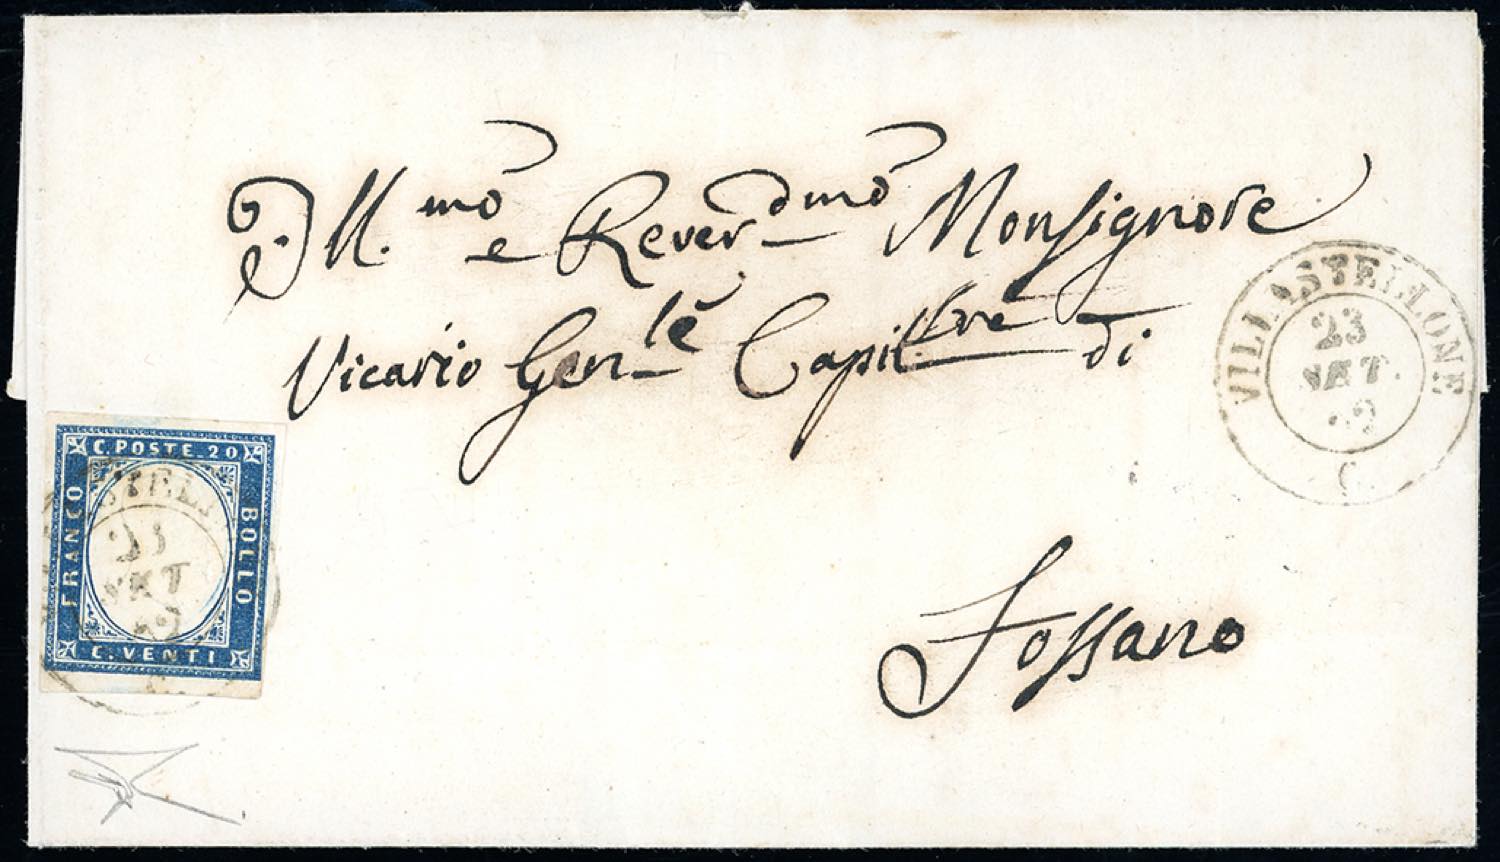 Ill.mo e Rever.dmo Monsignore
Vicario Gen.le Capit.lre di
Fossano
VILLASTELLONE
23
SET.
62
C. POSTE. 20
FRANCO
BOLLO
C. VENTI
23
SET
62